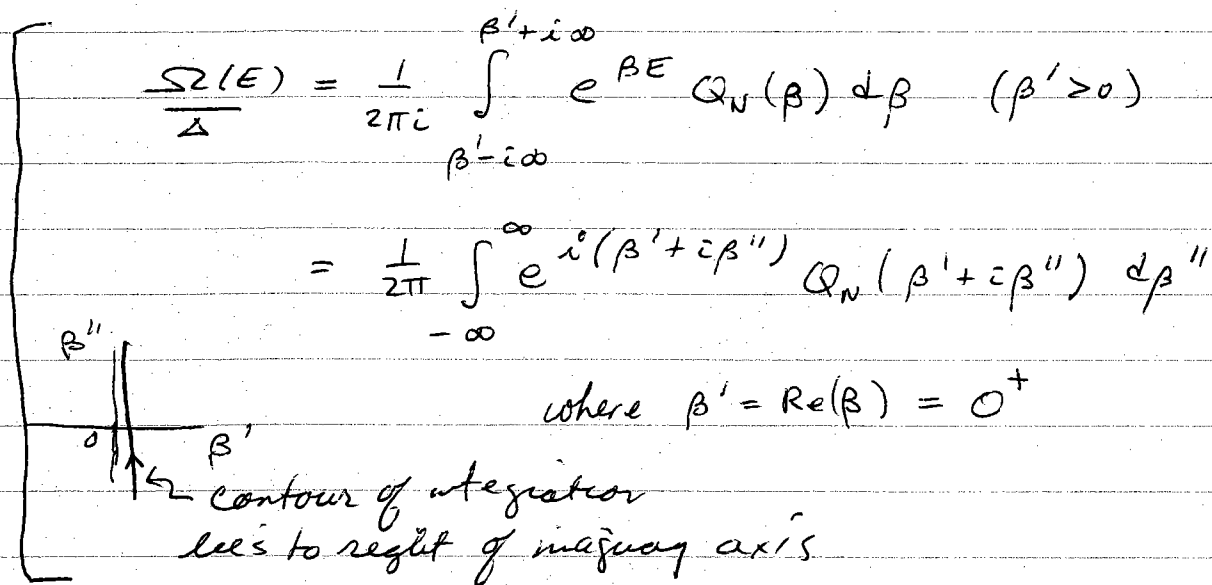 Ω(E)/Δ = 1/2πi ∫_{β'-i∞}^{β'+i∞} e^{βE} Q_N(β) dβ (β'>0)
= 1/2π ∫_{-∞}^{∞} e^{i(β'+iβ'')} Q_N(β'+iβ'') dβ''
β''
where β' = Re(β) = 0⁺
0 β'
contour of integration
lies to right of imaginary axis